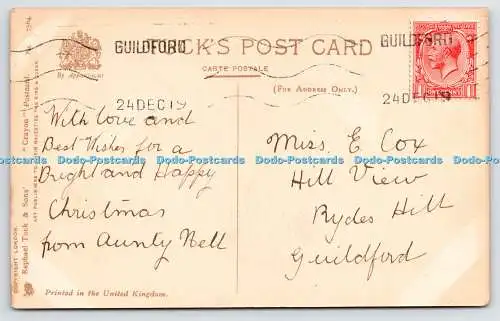 GUILDFORD
TUCK'S POST CARD
GUILDFORD
By Appointment
CARTE POSTALE
(FOR ADDRESS ONLY.)
24 DEC 19
24 DEC 19
With love and
Best Wishes for a
Bright and Happy
Christmas
from Aunty Nell
Miss. E Cox
Hill View
Rydes Hill
Guildford
Dodo-Postcards Dodo-Postcards Dodo-Postcards Dodo-Postcards Dodo-Postcards Dodo-Postcards
Raphael Tuck & Sons' "Crayon" Postcard
ART PUBLISHERS TO THEIR MAJESTIES THE KING & QUEEN.
COPYRIGHT LONDON.
Printed in the United Kingdom.